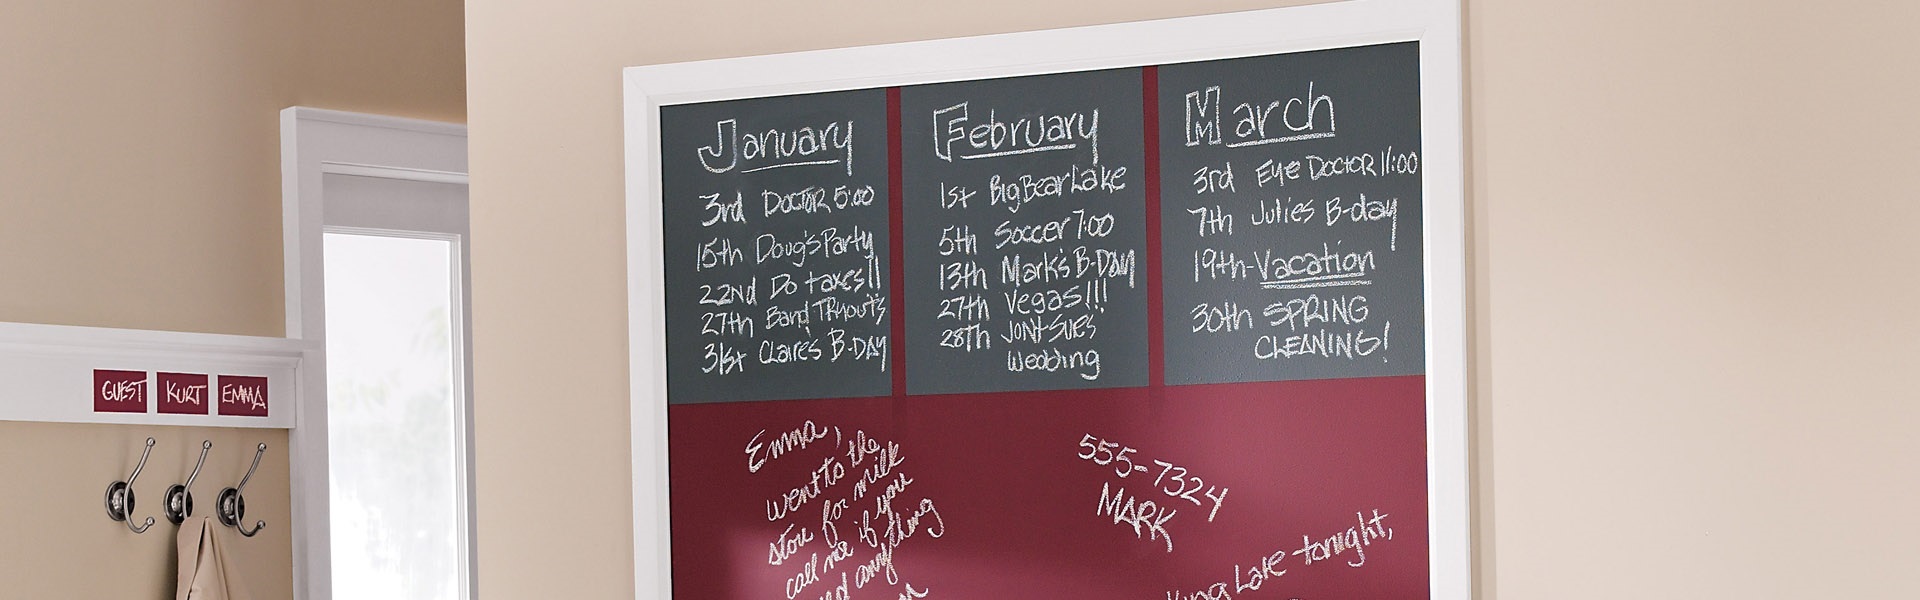 January
3rd Doctor 5:00
15th Doug's Party
22nd Do taxes!!
27th Band Tryout's
31st Claire's B-Day
February
1st Big Bear Lake
5th Soccer 7:00
13th Mark's B-Day
27th Vegas!!!
28th Jon+Sue's
Wedding
March
3rd Eye Doctor 11:00
7th Julies B-day
19th-Vacation
30th SPRING
CLEANING!
GUEST KURT EMMA
Emma,
went to the
store for milk
call me if you
anything
555-7324
MARK
Late tonight,